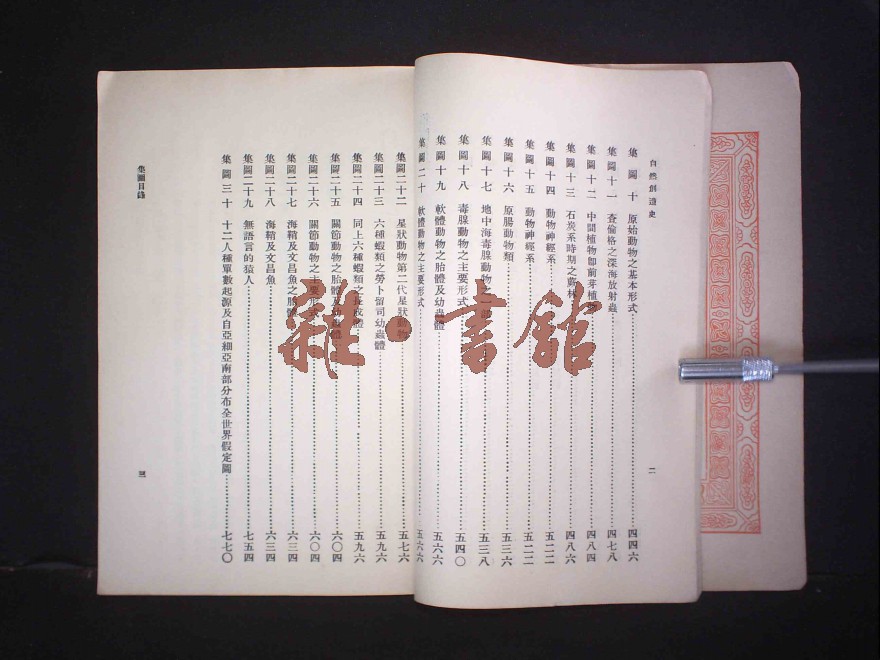 自然創造史
集圖十 原始動物之基本形式 四四六
集圖十一 查倫格之深海放射蟲 四七八
集圖十二 中間植物卽前芽植物 四八四
集圖十三 石炭系時期之蕨林 四八六
集圖十四 動物神經系 五二二
集圖十五 動物神經系 五二二
集圖十六 原腸動物類 五三六
集圖十七 地中海毒腺動物之一部 五三八
集圖十八 毒腺動物之主要形式 五四〇
集圖十九 軟體動物之胎體及幼蟲體 五六六
集圖二十 軟體動物之主要形式 五六六
二
集圖二十二 星狀動物第二代星狀動物 五七六
集圖二十三 六種蝦類之勞卜留司幼蟲體 五九六
集圖二十四 同上六種蝦類之長成體 五九六
集圖二十五 關節動物之胎體及幼蟲體 六〇四
集圖二十六 關節動物之主要形式 六〇四
集圖二十七 海鞘及文昌魚之胎體 六三四
集圖二十八 海鞘及文昌魚 六三四
集圖二十九 無語言的猿人 七五四
集圖三十 十二人種單數起源及自亞細亞南部分布全世界假定圖 七七〇
集圖目錄
三
雜·書館